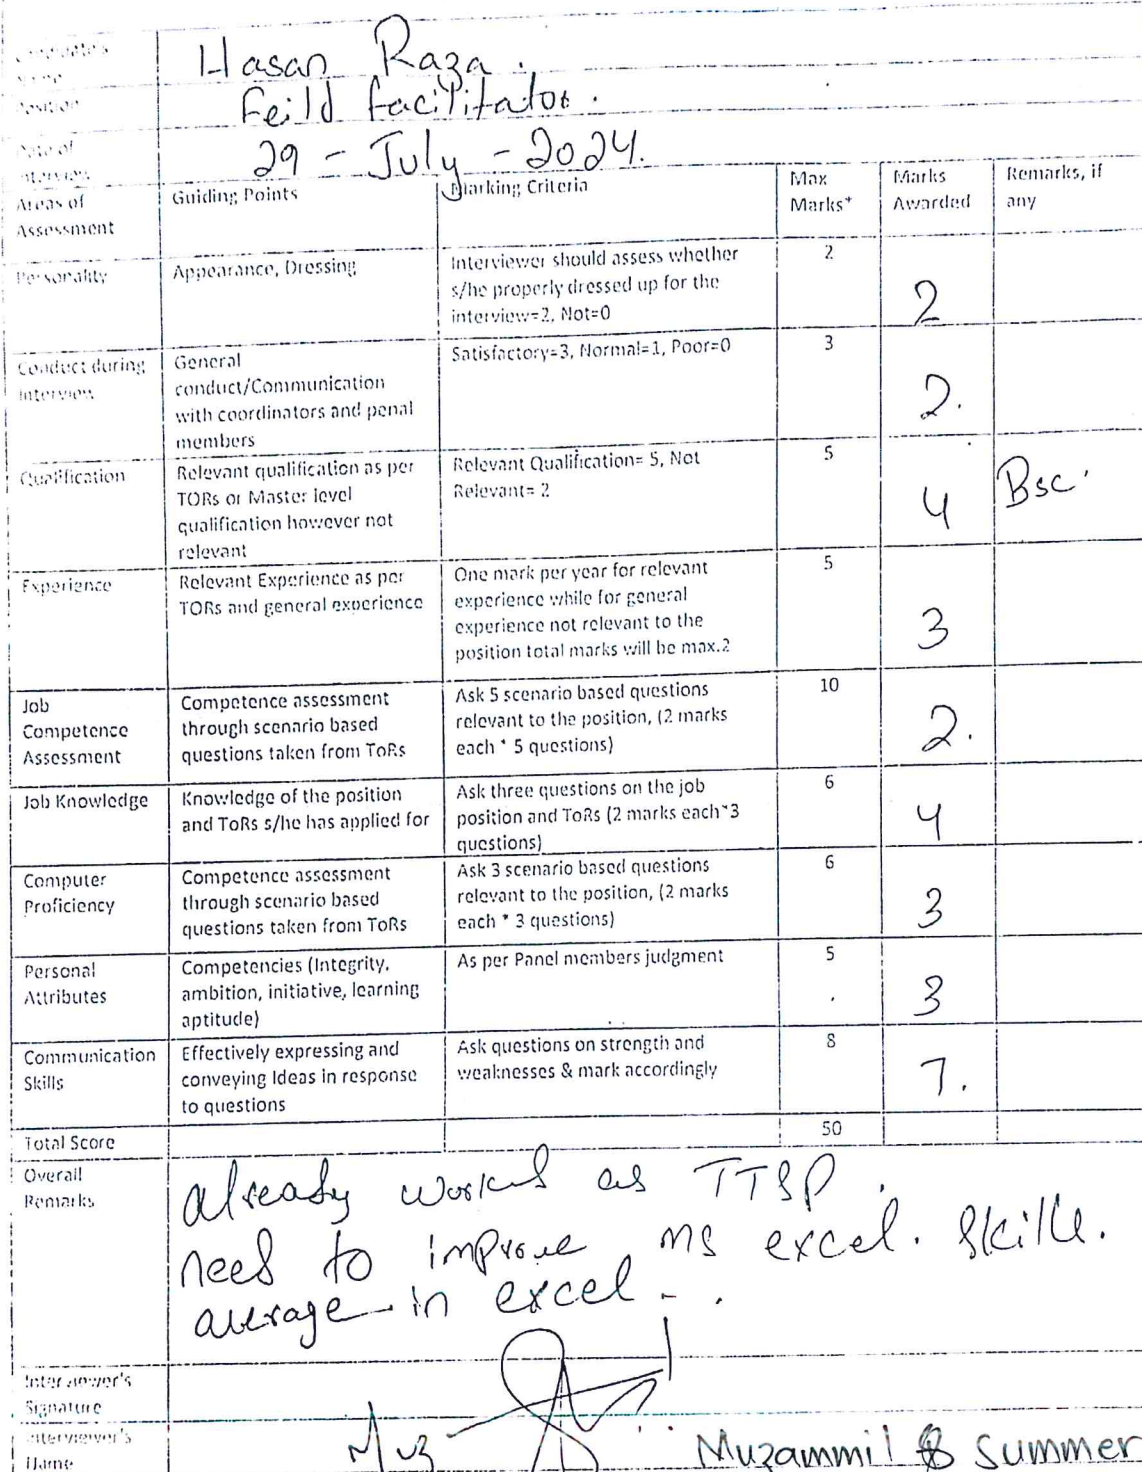 Candidate's Name Hasan Raza.
Position Feild Facilitator.
Date of Interview 29 - July - 2024.
Areas of Assessment Guiding Points Marking Criteria Max Marks* Marks Awarded Remarks, if any
Personality Appearance, Dressing Interviewer should assess whether s/he properly dressed up for the interview=2, Not=0 2 2
Conduct during Interview General conduct/Communication with coordinators and penal members Satisfactory=3, Normal=1, Poor=0 3 2.
Qualification Relevant qualification as per TORs or Master level qualification however not relevant Relevant Qualification= 5, Not Relevant= 2 5 4 Bsc.
Experience Relevant Experience as per TORs and general experience One mark per year for relevant experience while for general experience not relevant to the position total marks will be max.2 5 3
Job Competence Assessment Competence assessment through scenario based questions taken from ToRs Ask 5 scenario based questions relevant to the position, (2 marks each * 5 questions) 10 2.
Job Knowledge Knowledge of the position and ToRs s/he has applied for Ask three questions on the job position and ToRs (2 marks each*3 questions) 6 4
Computer Proficiency Competence assessment through scenario based questions taken from ToRs Ask 3 scenario based questions relevant to the position, (2 marks each * 3 questions) 6 3
Personal Attributes Competencies (Integrity, ambition, initiative, learning aptitude) As per Panel members judgment 5 3
Communication Skills Effectively expressing and conveying Ideas in response to questions Ask questions on strength and weaknesses & mark accordingly 8 7.
Total Score 50
Overall Remarks already worked as TTSP.
need to improve ms excel. skills.
average in excel - .
Interviewer's Signature
Interviewer's Name Muz Muzammil & Summer